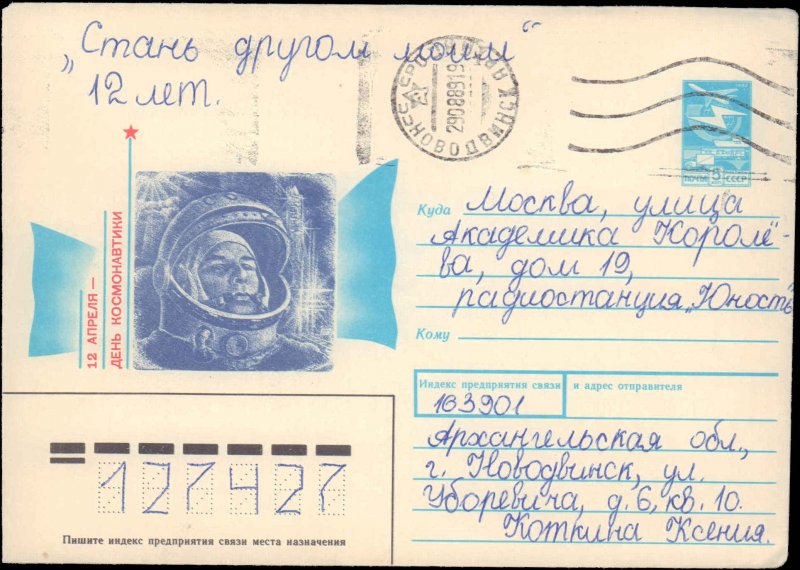 „Стань другом моим“
12 лет.
СССР НОВОДВИНСК АРХАНГ.
29088919
ПОЧТА 5 СССР
12 АПРЕЛЯ —
ДЕНЬ КОСМОНАВТИКИ
Куда Москва, улица
Академика Королё-
ва, дом 19,
радиостанция „Юность“
Кому
Индекс предприятия связи и адрес отправителя
163901
Архангельская обл.,
г. Новодвинск, ул.
Уборевича, д. 6, кв. 10.
Коткина Ксения.
127427
Пишите индекс предприятия связи места назначения